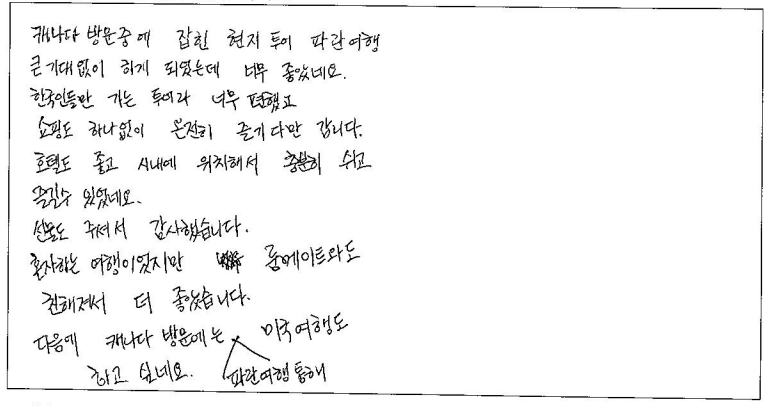 캐나다 방문중에 잡힌 현지 투어 파란여행
큰 기대없이 하게 되었는데 너무 좋았네요.
한국인들만 가는 투어라 너무 편했고
쇼핑도 하나없이 온전히 즐기다만 갑니다.
호텔도 좋고 시내에 위치해서 충분히 쉬고
즐길수 있었네요.
선물도 주셔서 감사했습니다.
혼자하는 여행이었지만 룸메이트와도
친해져서 더 좋았습니다.
다음에 캐나다 방문에는 미국여행도
하고 싶네요. 파란여행 통해